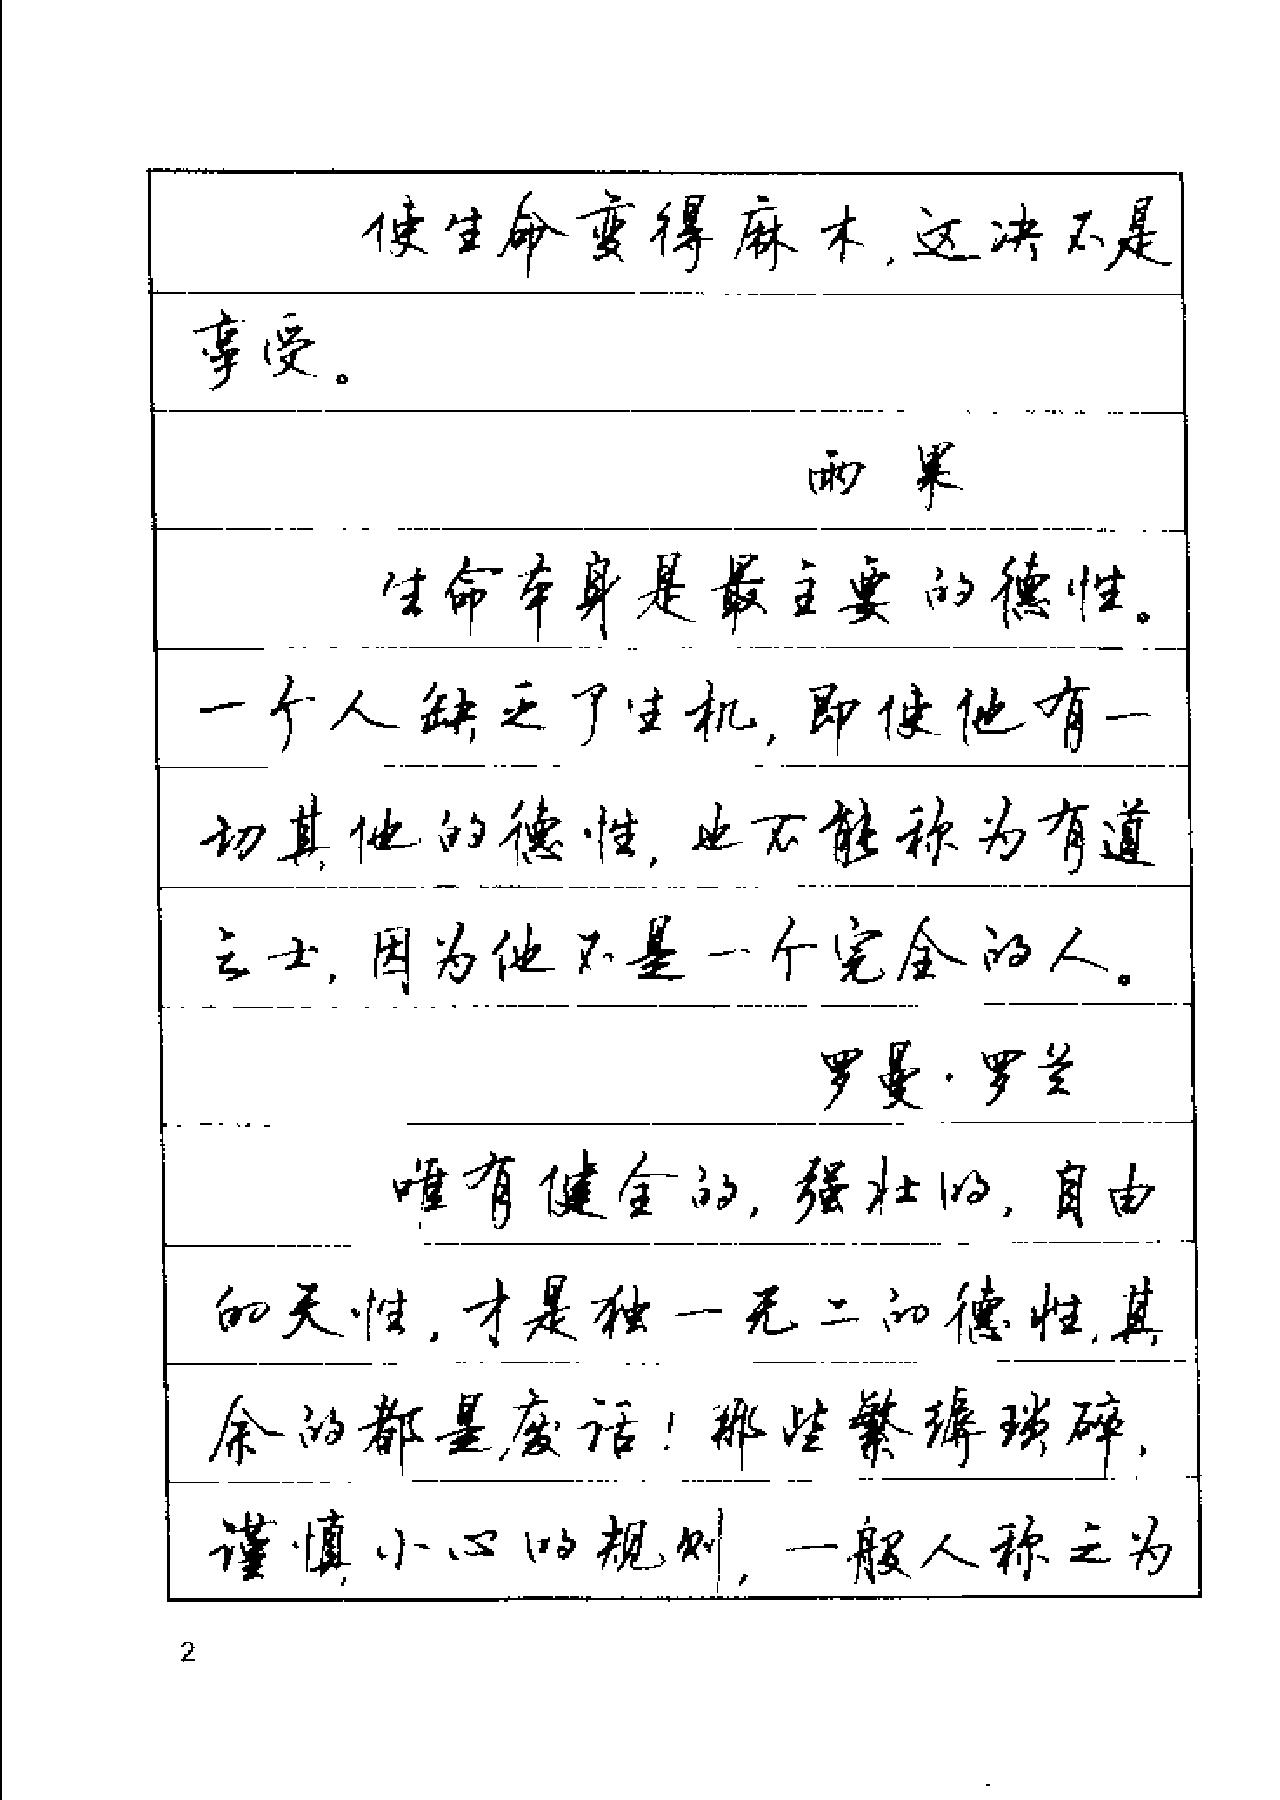 使生命变得麻木，这决不是
享受。
雨果
生命本身是最主要的德性。
一个人缺乏了生机，即使他有一
切其他的德性，也不能称为有道
之士，因为他不是一个完全的人。
罗曼·罗兰
唯有健全的，强壮的，自由
的天性，才是独一无二的德性，其
余的都是废话！那些繁缛琐碎，
谨慎小心的规则，一般人称之为
2